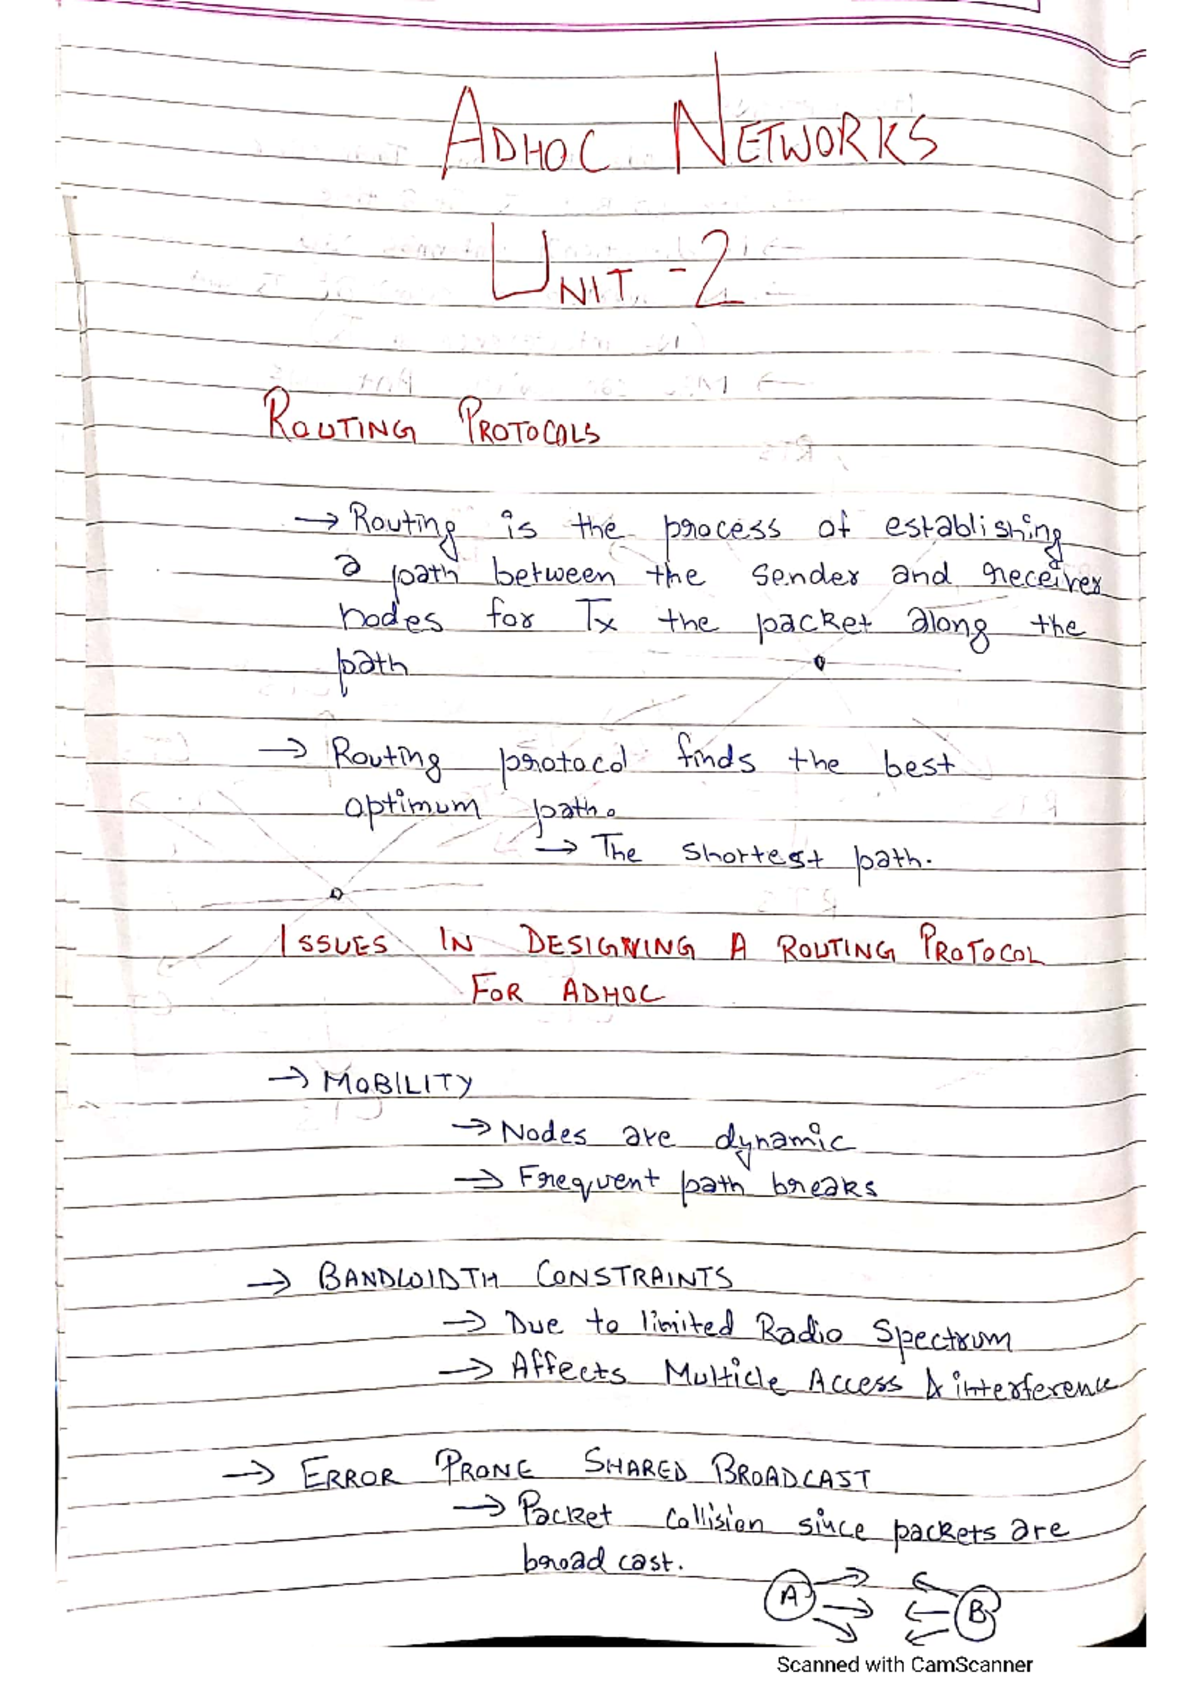 ADHOC NETWORKS
UNIT - 2
ROUTING PROTOCOLS
→ Routing is the process of establishing
a path between the sender and receiver
nodes for Tx the packet along the
path
→ Routing protocol finds the best
optimum path.
→ The shortest path.
ISSUES IN DESIGNING A ROUTING PROTOCOL
FOR ADHOC
→ MOBILITY
→ Nodes are dynamic
→ Frequent path breaks
→ BANDWIDTH CONSTRAINTS
→ Due to limited Radio Spectrum
→ Affects Multicle Access & interference
→ ERROR PRONE SHARED BROADCAST
→ Packet Collision since packets are
broadcast.
A → ← B
Scanned with CamScanner